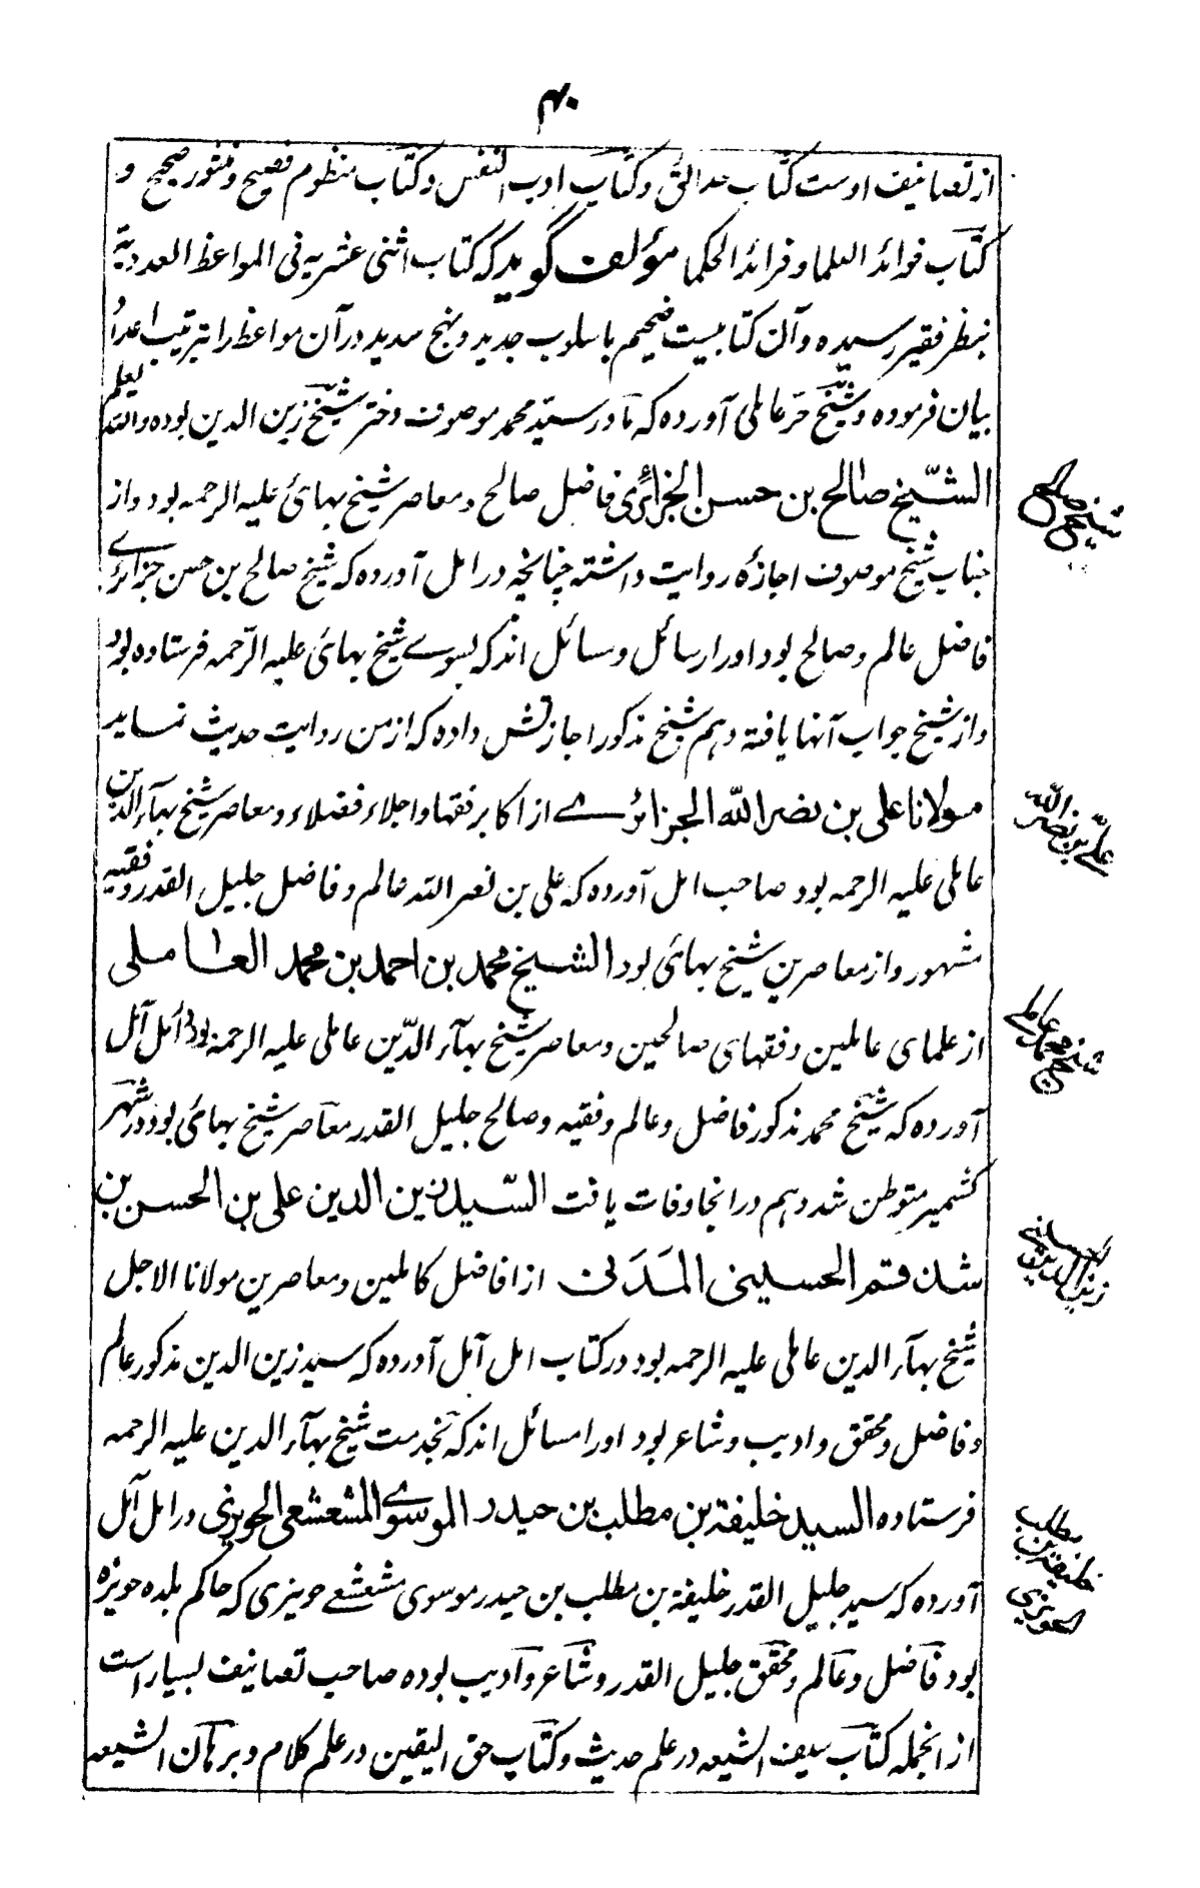 ۴۰
از تصانیف اوست کتاب حدائق و کتاب ادب النفس و کتاب منظوم فصیح و منثور صحیح و
کتاب فوائد العلما و فرائد الحکما مؤلف گوید که کتاب اثنی عشریه فی المواعظ العددیة
بنظر فقیر رسیده و آن کتابیست ضخیم باسلوب جدید و نهج سدید در آن مواعظ را بترتیب اعداد
بیان فرموده و شیخ حر عاملی آورده که مادر سید محمد موصوف دختر شیخ زین الدین بوده والله یعلم
الشیخ صالح بن حسن الجزائری فاضل صالح و معاصر شیخ بهائی علیه الرحمه بود و از
جناب شیخ موصوف اجازهٔ روایت داشته چنانچه در امل آورده که شیخ صالح بن حسن جزائری
فاضل عالم و صالح بود اورا رسائل و مسائل اند که بسوے شیخ بهائی علیه الرحمه فرستاده بود
و از شیخ جواب آنها یافته و هم شیخ مذکور اجازتش داده که از من روایت حدیث نماید
مولانا علی بن نصر الله الجزائرے از اکابر فقها و اجلاء فضلاء و معاصر شیخ بهآء الدین
عاملی علیه الرحمه بود صاحب امل آورده که علی بن نصر الله عالم و فاضل جلیل القدر و فقیه
مشهور و از معاصرین شیخ بهائی بود الشیخ محمد بن احمد بن محمد العاملی
از علمای عاملین و فقهای صالحین و معاصر شیخ بهآء الدّین عاملی علیه الرحمه بود در امل آمل
آورده که شیخ محمد مذکور فاضل و عالم و فقیه و صالح جلیل القدر معاصر شیخ بهائی بود در شهر
کشمیر متوطن شد و هم در انجا وفات یافت السّید زین الدین علی بن الحسن بن
شدقم الحسینی المدنی از افاضل کاملین و معاصرین مولانا الاجل
شیخ بهآء الدین عاملی علیه الرحمه بود در کتاب امل آمل آورده که سید زین الدین مذکور عالم
و فاضل و محقق و ادیب و شاعر بود اورا مسائل اند که بخدمت شیخ بهآء الدین علیه الرحمه
فرستاده السید خلیفة بن مطلب بن حیدر الموسوے المشعشعی الحویزی در امل آمل
آورده که سید جلیل القدر خلیفة بن مطلب بن حیدر موسوی مشعشعے حویزی که حاکم بلده حویزه
بود فاضل و عالم و محقق جلیل القدر و شاعر و ادیب بوده صاحب تصانیف بسیار است
از انجمله کتاب سیف الشیعه در علم حدیث و کتاب حق الیقین در علم کلام و برهان الشیعه
شیخ صالح
علی بن نصر الله
شیخ محمد عاملے
زین الدین
خلیفة بن مطلب
الحویزی